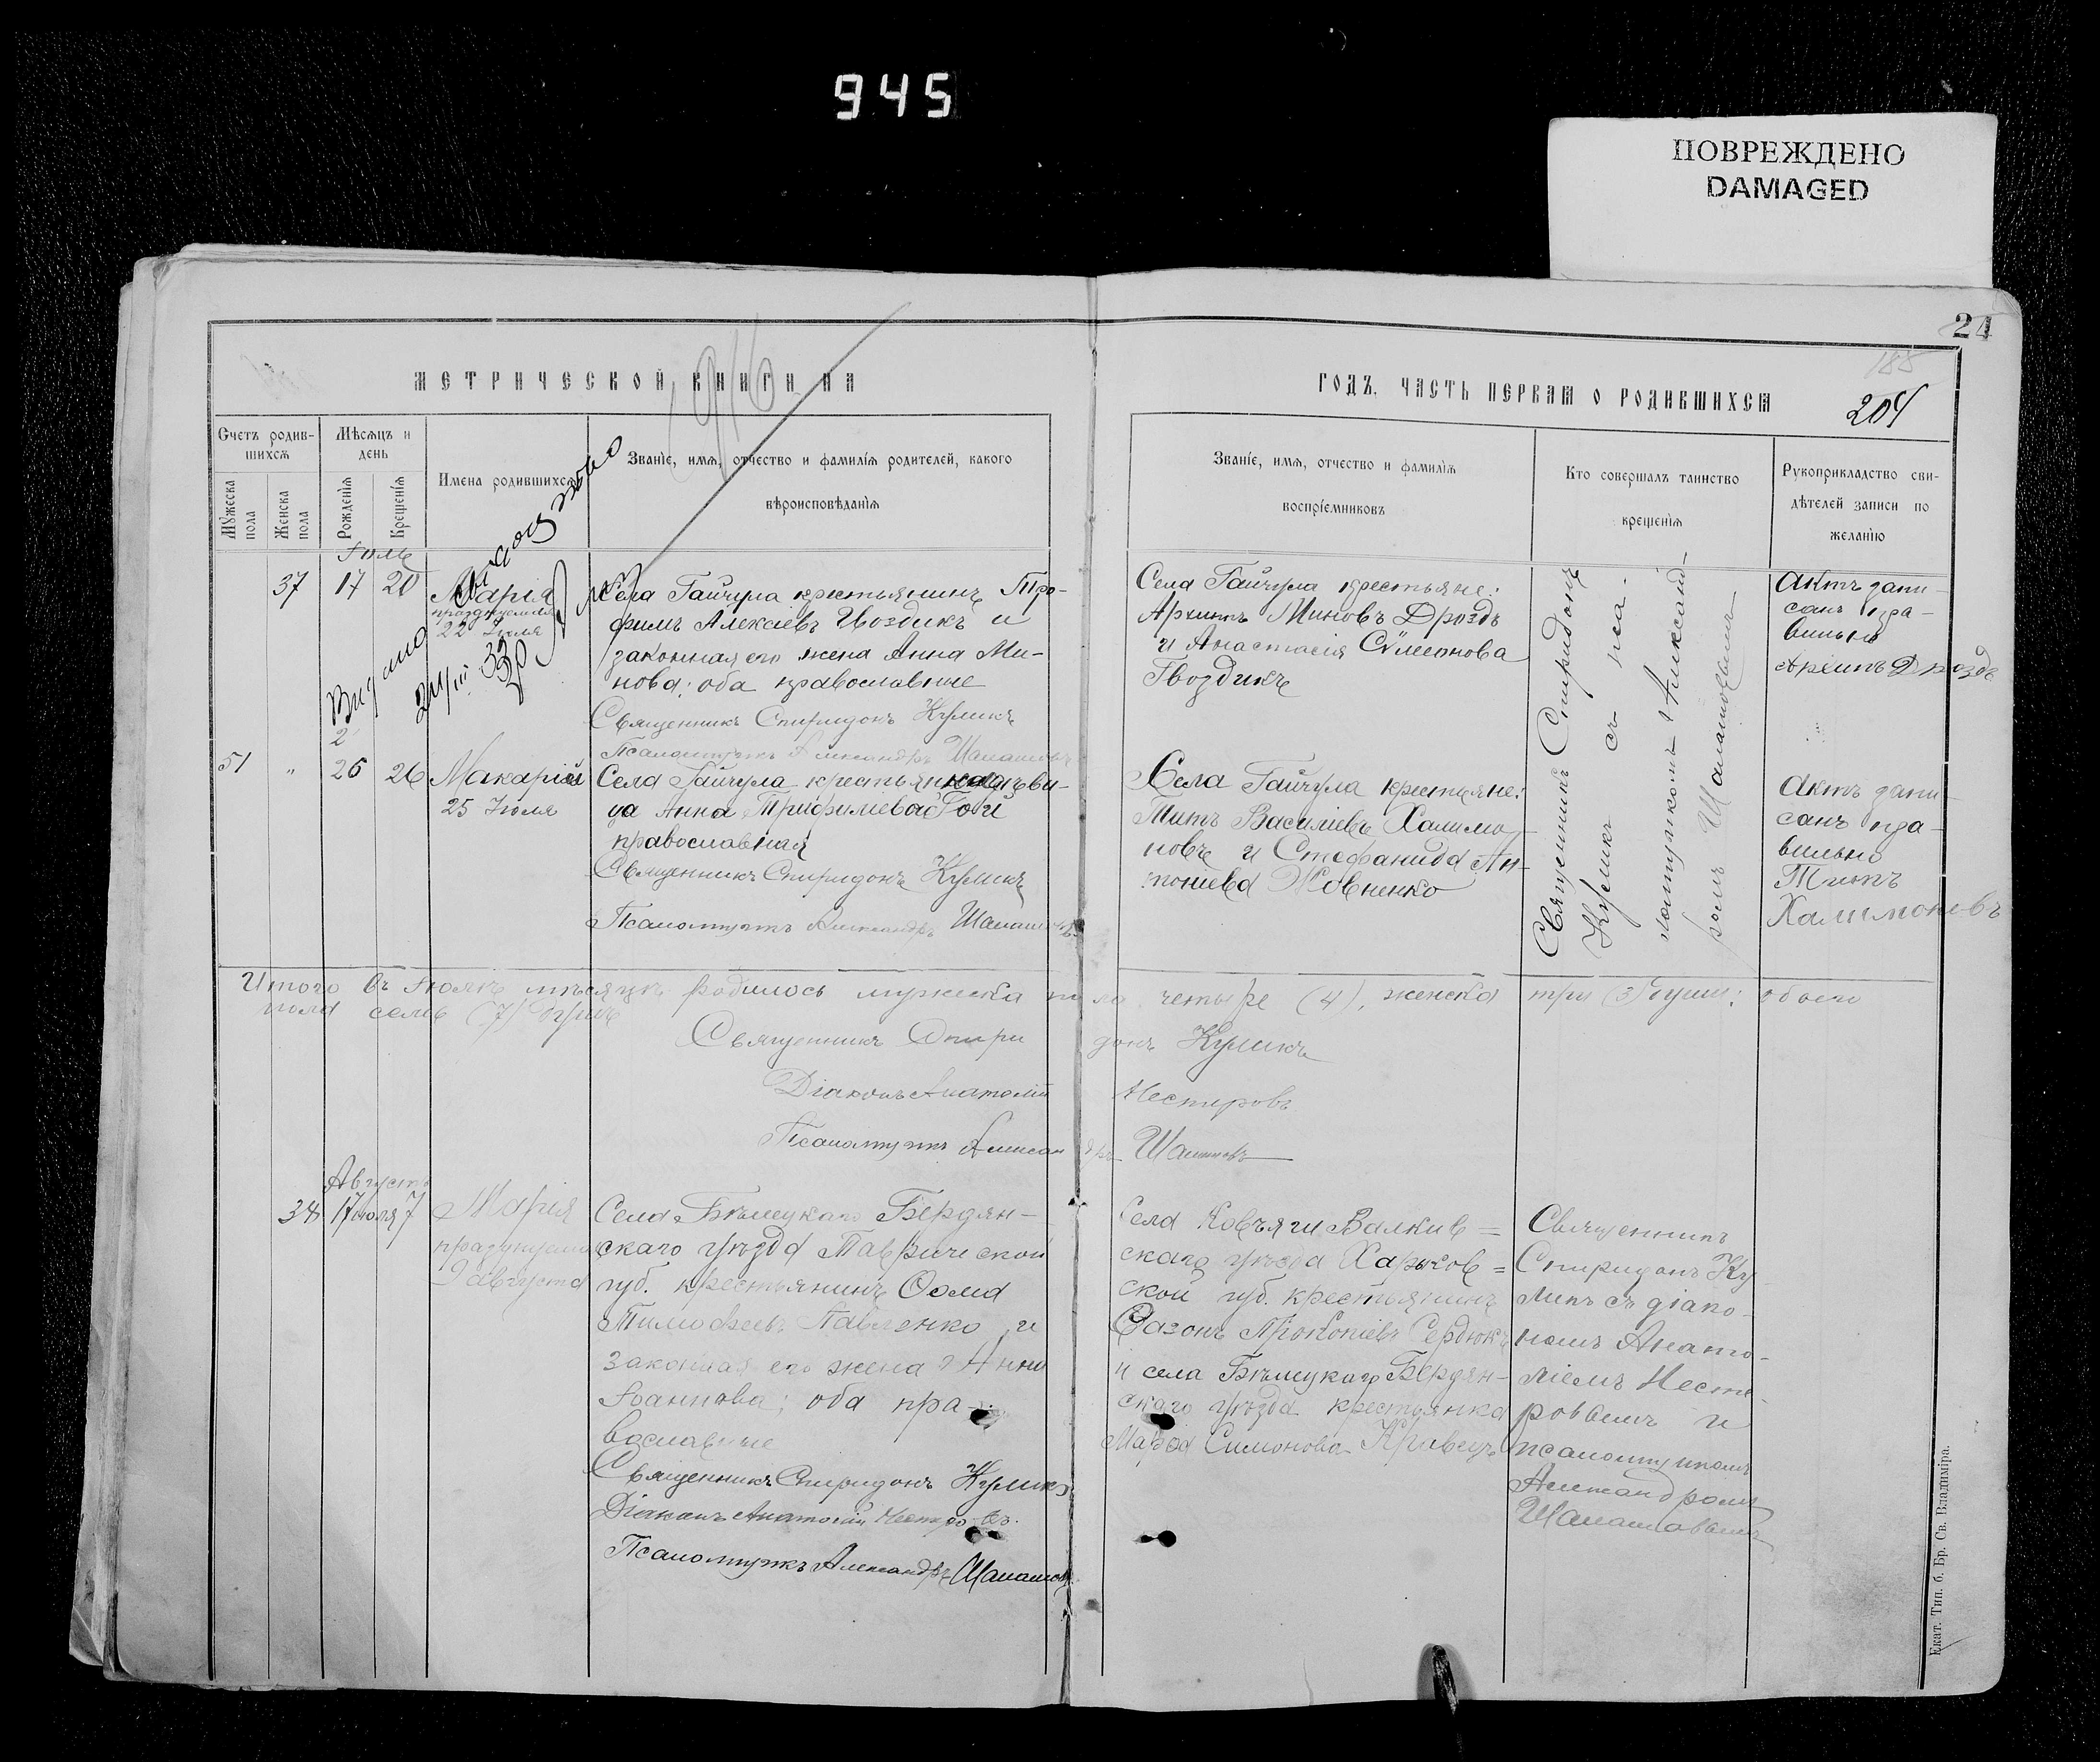 945
ПОВРЕЖДЕНО
DAMAGED
24
185
204
МЕТРИЧЕСКОЙ КНИГИ НА
1916
ГОДЪ, ЧАСТЬ ПЕРВАЯ О РОДИВШИХСЯ
Счетъ родив-
шихся
Мѣсяцъ и
день
Мужеска
пола
Женска
пола
Рожденія
Крещенія
Имена родившихся
Званіе, имя, отчество и фамилія родителей, какого
вѣроисповѣданія
Званіе, имя, отчество и фамилія
воспріемниковъ
Кто совершалъ таинство
крещенія
Рукоприкладство сви-
дѣтелей записи по
желанію
Іюль
37 17 20
Марія
празднуемая
22 Іюля
Села Гайчула крестьянинъ Тро-
фимъ Алексіевъ Гвоздикъ и
законная его жена Анна Ми-
нова; оба православные
Священникъ Спиридонъ Куликъ
Псаломщикъ Александръ
Села Гайчула крестьяне:
Архипъ Миновъ Дроздъ
и Анастасія Сѵмеонова
Гвоздикъ
Священникъ Спиридонъ
Куликъ съ пса-
ломщикомъ Александ-
ромъ
Актъ запи-
санъ пра-
вильно
Архипъ Дроздъ
51 " 25 26
Макарій
25 Іюля
Села Гайчула крестьянская дѣви-
ца Анна Трифилиева
православная
Священникъ Спиридонъ Куликъ
Псаломщикъ Александръ
Села Гайчула крестьяне:
Титъ Василіевъ Халимо-
новъ и Стефанида Ан-
тоніева Жовненко
Актъ запи-
санъ пра-
вильно
Титъ
Халимоновъ
Итого въ Іюлѣ мѣсяцѣ родилось мужеска пола четыре (4), женска три (3) души; обоего
пола семь (7) душъ
Священникъ Спиридонъ Куликъ
Діаконъ Анатолій Нестеровъ
Псаломщикъ Александръ
Августъ
38 17 июля 7
Марія
празднуемая
9 августа
Села Бѣлецкаго Бердян-
скаго уѣзда Таврической
губ. крестьянинъ Ѳома
Тимофеевъ Павленко и
законная его жена Анна
Іоаннова; оба пра-
вославные
Священникъ Спиридонъ Куликъ
Діаконъ Анатолій Нестеровъ.
Псаломщикъ Александръ
Села Ковъяги Валков=
скаго уѣзда Харьков=
ской губ. крестьянинъ
Сазонъ Прокопіевъ Сердюкъ
и села Бѣлецкаго Бердян-
скаго уѣзда крестьянка
Марѳа Симонова Кравецъ
Священникъ
Спиридонъ Ку
ликъ съ діако-
номъ Анато-
ліемъ Несте
ровымъ и
псаломщикомъ
Александромъ
Екат. Тип. б. Бр. Св. Владиміра.